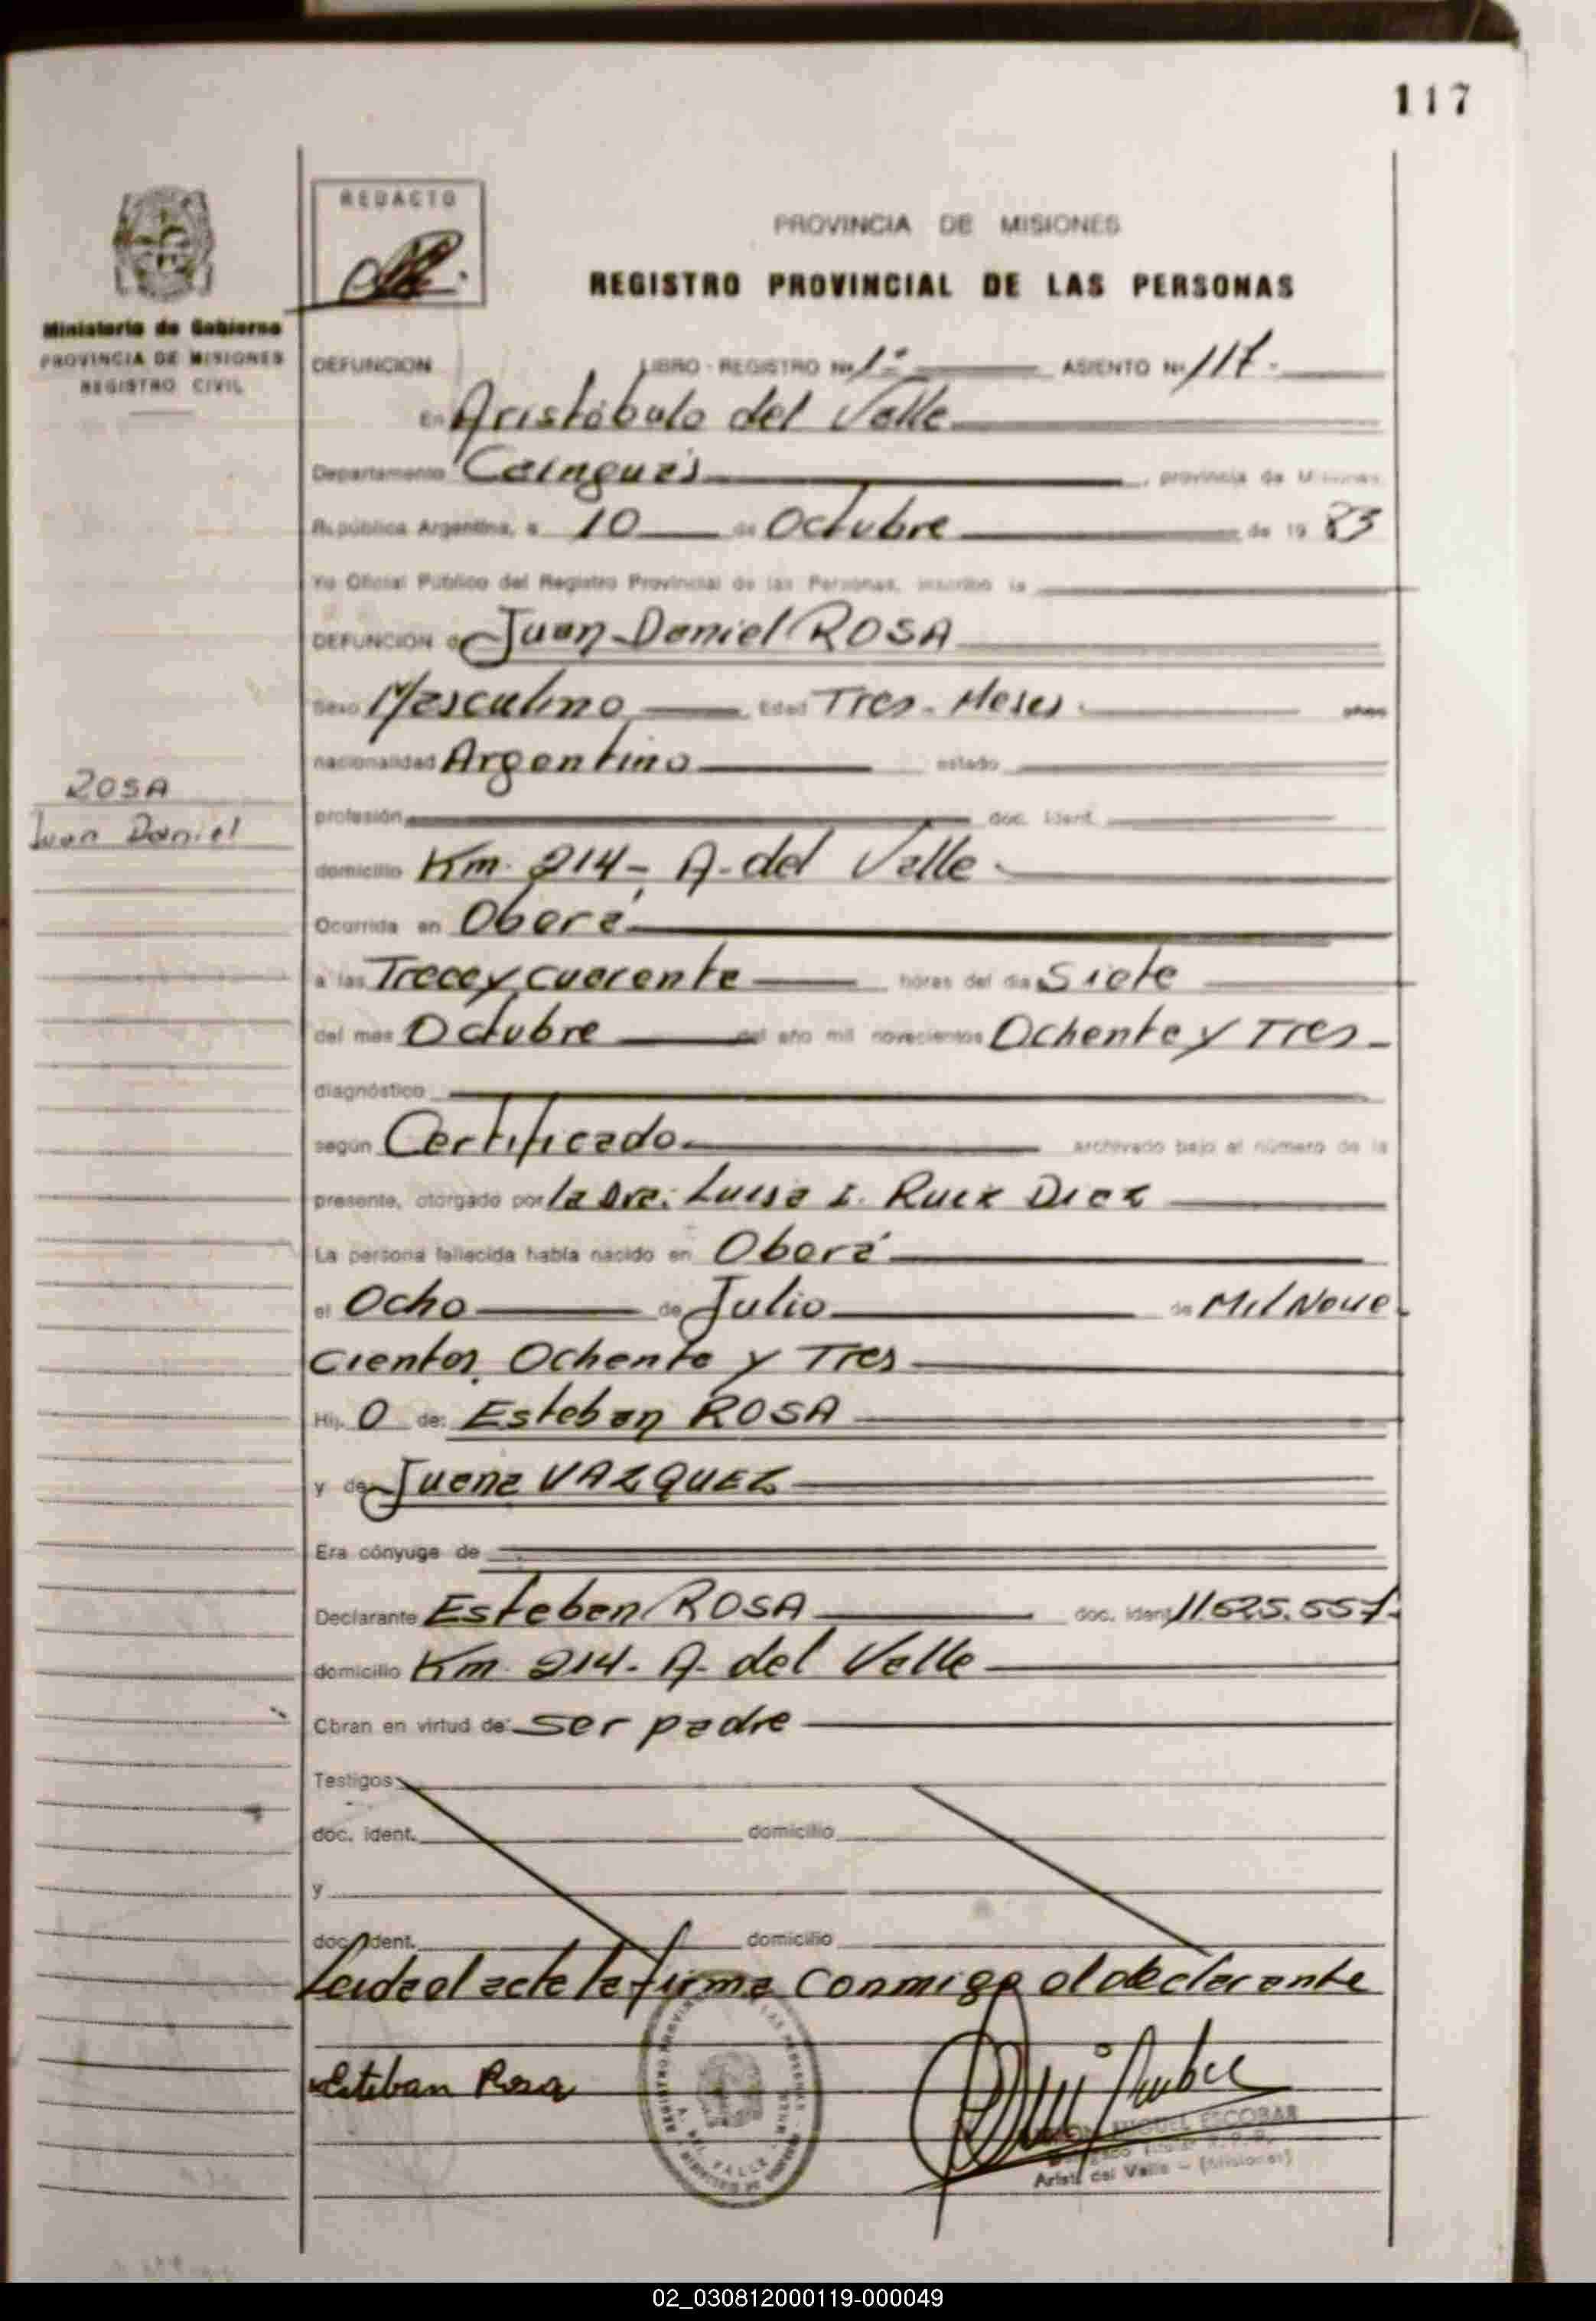 117
REDACTO
PROVINCIA DE MISIONES
REGISTRO PROVINCIAL DE LAS PERSONAS
Ministerio de Gobierno
PROVINCIA DE MISIONES
REGISTRO CIVIL
DEFUNCION LIBRO - REGISTRO Nº 1º ASIENTO Nº 117.
En Aristóbulo del Valle
Departamento Cainguás, provincia de Misiones
República Argentina, a 10 de Octubre de 19 83
Yo Oficial Público del Registro Provincial de las Personas, inscribo la
DEFUNCION de Juan Daniel ROSA
Sexo Masculino Edad Tres - Meses. años
nacionalidad Argentino estado
ROSA
Juan Daniel
profesión doc. ident.
domicilio Km. 214 - A. del Valle
Ocurrida en Oberá
a las Trece y cuarenta horas del día Siete
del mes Octubre del año mil novecientos Ochenta y Tres
diagnóstico
según Certificado archivado bajo el número de la
presente, otorgado por la Dra. Luisa I. Ruiz Diaz
La persona fallecida había nacido en Oberá
el Ocho de Julio de Mil Nove
cientos Ochenta y Tres
Hij O de: Esteban ROSA
y de Juana VAZQUEZ
Era cónyuge de
Declarante Esteban ROSA doc. ident. 11.625.557.
domicilio Km. 214. A. del Valle
Obran en virtud de: ser padre
Testigos
doc. ident. domicilio
y
doc. ident. domicilio
Leida el acta la firma conmigo el declarante
Esteban Rosa
MIGUEL ESCOBAR
Arist. del Valle - (Misiones)
02_030812000119-000049